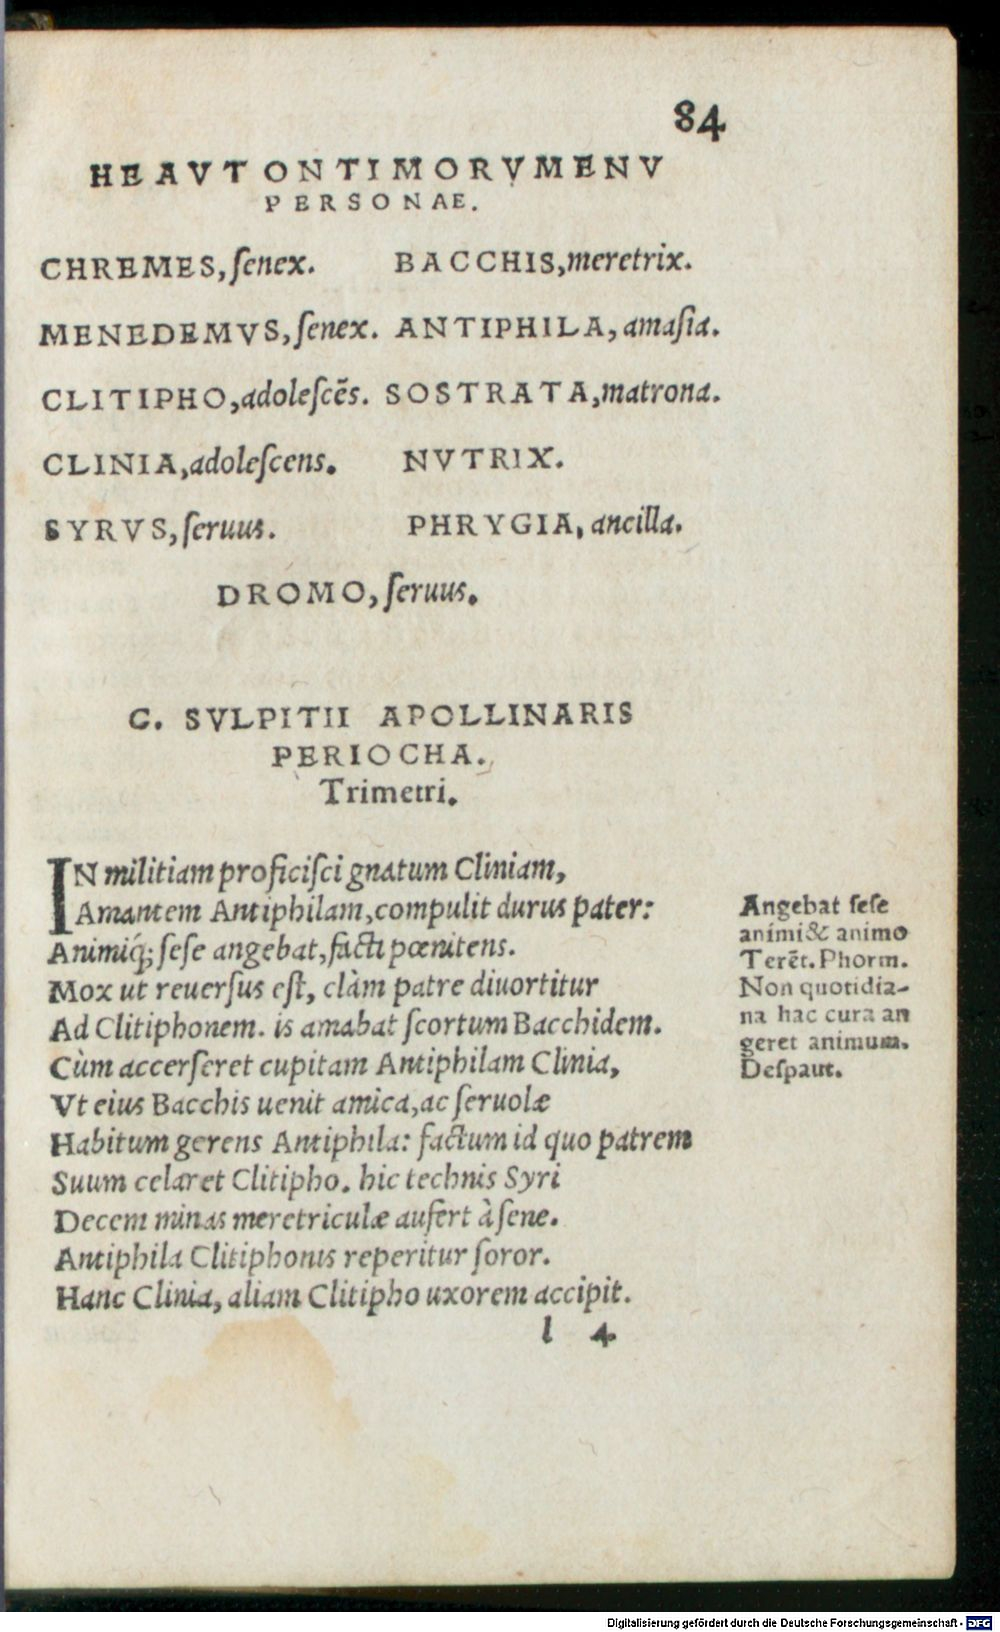 84
HEAVTONTIMORVMENV
PERSONAE.
CHREMES, ſenex. BACCHIS, meretrix.
MENEDEMVS, ſenex. ANTIPHILA, amaſia.
CLITIPHO, adoleſcẽs. SOSTRATA, matrona.
CLINIA, adoleſcens. NVTRIX.
SYRVS, ſeruus. PHRYGIA, ancilla.
DROMO, ſeruus.
C. SVLPITII APOLLINARIS
PERIOCHA.
Trimetri.
IN militiam proficiſci gnatum Cliniam,
Amantem Antiphilam, compulit durus pater:
Animiq́; ſeſe angebat, facti pœnitens.
Mox ut reuerſus eſt, clàm patre diuortitur
Ad Clitiphonem. is amabat ſcortum Bacchidem.
Cùm accerſeret cupitam Antiphilam Clinia,
Vt eius Bacchis uenit amica, ac ſeruolæ
Habitum gerens Antiphila: factum id quo patrem
Suum celaret Clitipho. hic technis Syri
Decem minas meretriculæ aufert à ſene.
Antiphila Clitiphonis reperitur ſoror.
Hanc Clinia, aliam Clitipho uxorem accipit.
l 4
Angebat ſeſe
animi & animo
Terẽt. Phorm.
Non quotidia-
na hac cura an
geret animum.
Deſpaut.
Digitalisierung gefördert durch die Deutsche Forschungsgemeinschaft - DFG